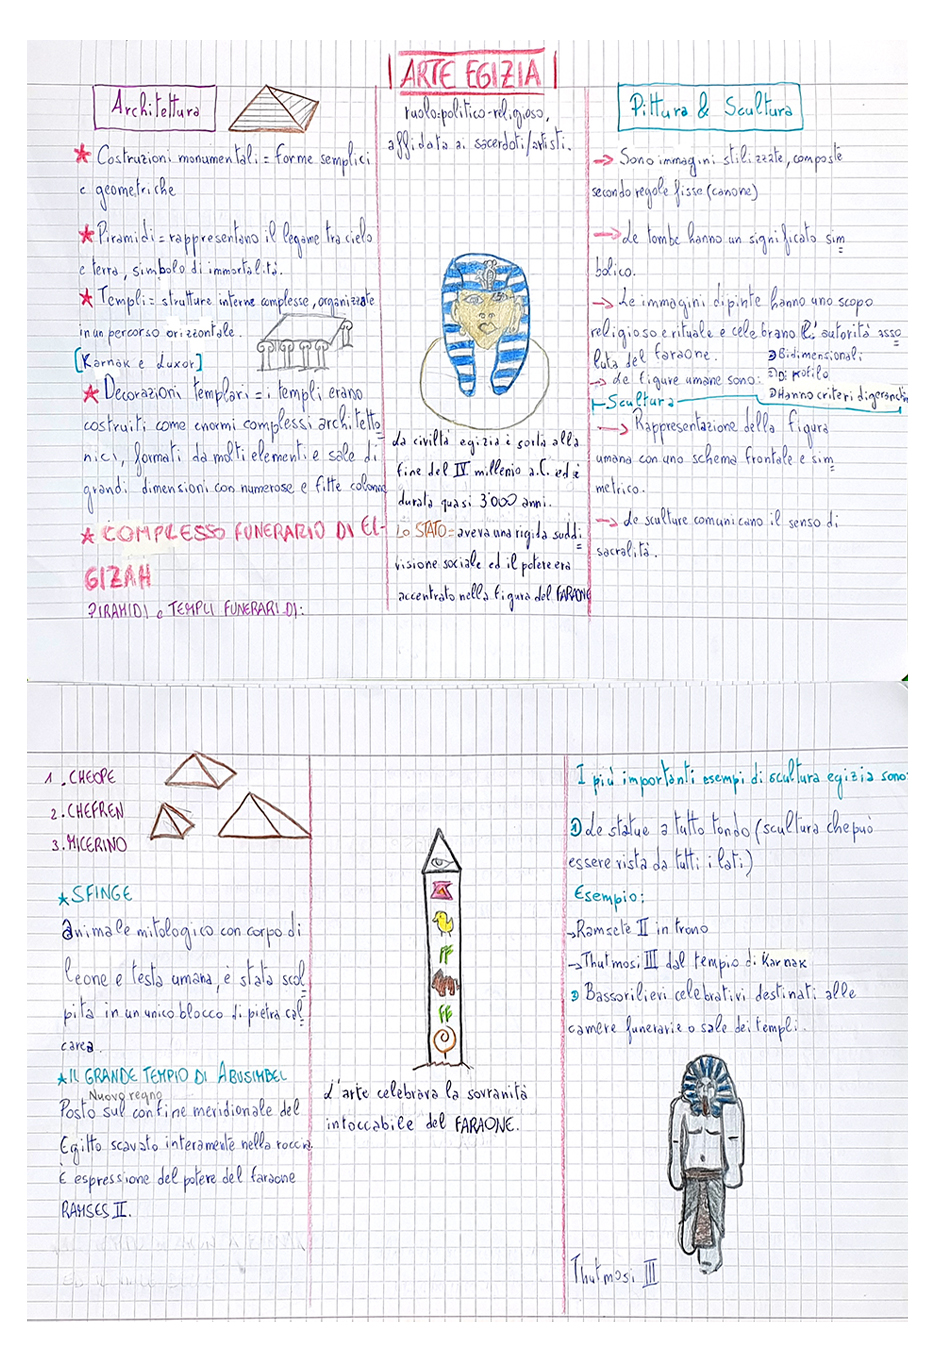 ARTE EGIZIA
ruolo: politico-religioso,
affidata ai sacerdoti/artisti.
Architettura
★ Costruzioni monumentali = forme semplici
e geometriche
★ Piramidi = rappresentano il legame tra cielo
e terra, simbolo di immortalità.
★ Templi = strutture interne complesse, organizzate
in un percorso orizzontale.
[Karnak e Luxor]
★ Decorazioni templari = i templi erano
costruiti come enormi complessi architetto
nici, formati da molti elementi e sale di
grandi dimensioni con numerose e fitte colonne
★ COMPLESSO FUNERARIO DI EL-
GIZAH
PIRAMIDI e TEMPLI FUNERARI DI:
La civiltà egizia è sorta alla
fine del IV millenio a.C. ed è
durata quasi 3'000 anni.
Lo STATO = aveva una rigida suddi
visione sociale ed il potere era
accentrato nella figura del FARAONE
Pittura & Scultura
→ Sono immagini stilizzate, composte
secondo regole fisse (canone)
→ Le tombe hanno un significato sim
bolico.
→ Le immagini dipinte hanno uno scopo
religioso e rituale e celebrano l'autorità asso
luta del faraone.
→ Le figure umane sono:
Bidimensionali
Di profilo
Hanno criteri di gerarchia
Scultura
→ Rappresentazione della figura
umana con uno schema frontale e sim
metrico.
→ Le sculture comunicano il senso di
sacralità.
1. CHEOPE
2. CHEFREN
3. MICERINO
★ SFINGE
animale mitologico con corpo di
leone e testa umana, è stata scol
pita in un unico blocco di pietra cal
carea.
★ IL GRANDE TEMPIO DI ABUSIMBEL
Nuovo regno
Posto sul confine meridionale del
Egitto scavato interamente nella roccia
È espressione del potere del faraone
RAMSES II.
L'arte celebrava la sovranità
intoccabile del FARAONE.
I più importanti esempi di scultura egizia sono:
Le statue a tutto tondo (scultura che può
essere vista da tutti i lati)
Esempio:
→ Ramsete II in trono
→ Thutmosi III dal tempio di Karnak
Bassorilievi celebrativi destinati alle
camere funerarie o sale dei templi.
Thutmosi III